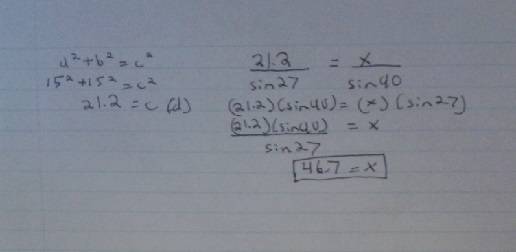 a² + b² = c²
15² + 15² = c²
21.2 = c (d)
21.2 / sin27 = x / sin40
(21.2)(sin40) = (x)(sin27)
(21.2)(sin40) / sin27 = x
46.7 = x